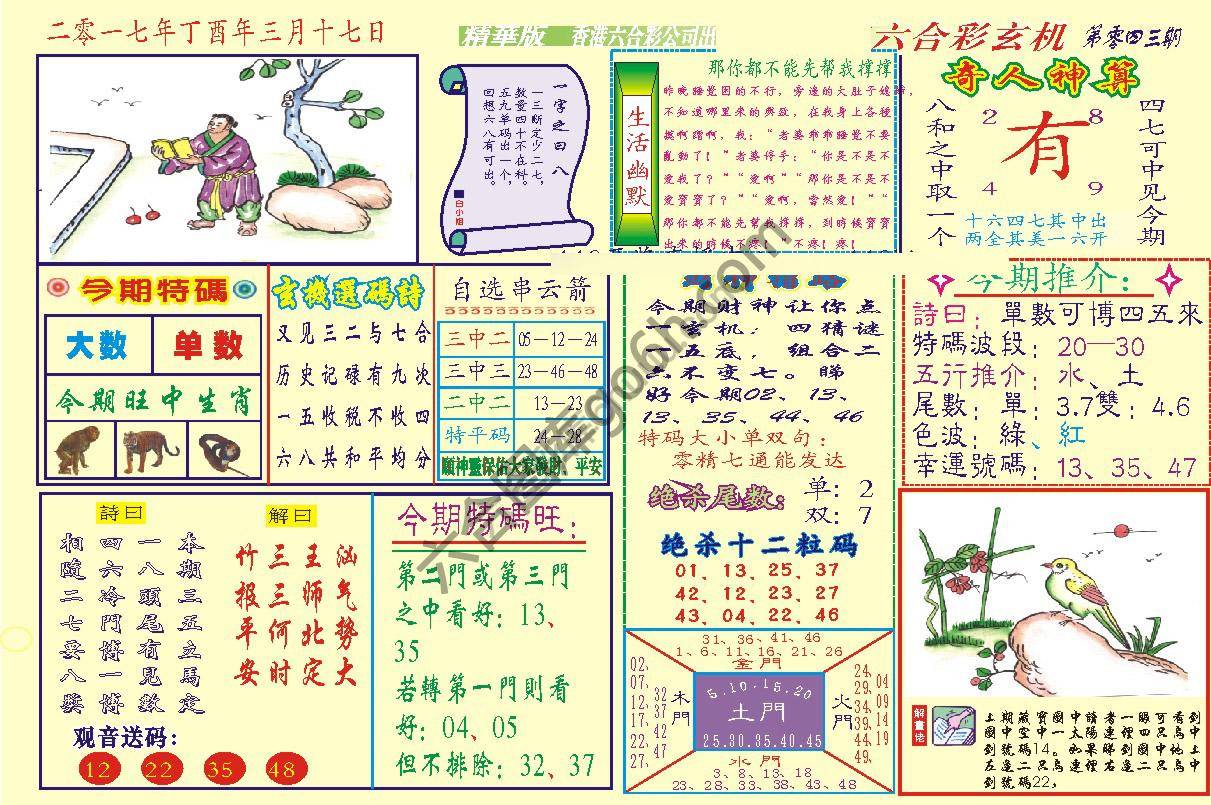 二零一七年丁酉年三月十七日
精華版 香港六合彩公司出
六合彩玄机 第零四三期
一字之曰八
一三断定少二七，
数量四十不在科。
五九单码出一个，
回想六八有可出。
白小姐
生活幽默
那你都不能先帮我撑撑
昨晚睡覺困的不行，旁邊的大肚子媳婦，
不知道哪里来的興致，在我身上各種
摸啊蹭啊，我：“老婆乖乖睡覺不要
亂動了！”老婆停手：“你是不是不
愛我了？”“愛啊”“那你是不是不
愛寶寶了？”“愛啊，當然愛！”“
那你都不能先幫我撑撑，到時候寶寶
出来的時候不疼
奇人神算
八和之中取一个
2 8
有
4 9
四七可中见今期
十六四七其中出
两全其美一六开
今期特碼
大数 单数
今期旺中生肖
玄機選碼詩
又见三二与七合
历史记碌有九次
一五收税不收四
六八共和平均分
自选串云箭
三中二 05—12—24
三中三 23—46—48
二中二 13—23
特平码 24—28
願神靈保佑大家發財、平安
今期财神让你点
一玄机，四猜谜
一五底，组合二
六不变七。睇
好今期02、13、
13、35、44、46
特码大小单双句：
零精七通能发达
绝杀尾数： 单：2
双：7
绝杀十二粒码
01、13、25、37
42、12、23、27
43、04、22、46
今期推介：
詩曰：單數可博四五來
特碼波段：20—30
五行推介：水、土
尾數：單：3.7雙：4.6
色波：綠、紅
幸運號碼：13、35、47
詩曰
本期三五立馬定
一八頭尾有見數
四六冷門博一博
相隨二七要八獎
解曰
汹气势大
王师北定
三三何时
竹报平安
观音送码：
12 22 35 48
今期特碼旺：
第二門或第三門
之中看好：13、
35
若轉第一門則看
好：04、05
但不排除：32、37
31、36、41、46
1、6、11、16、21、26
金門
02、07、12、17、22、27、
32、37、42、47
木門
5.10.15.20
土門
25.30.35.40.45
火門
24、29、34、39、44、49、
04、09、14、19
水門
3、8、13、18
23、28、33、38、43、48
解畫佬
上期藏寶圖中讀者一眼可看到
圖中空中一太陽連裡四只鳥中
到號碼14。如果睇到圖中地上
左邊二只鳥連裡右邊二只鳥中
到號碼22，
六合圖库go6h.com